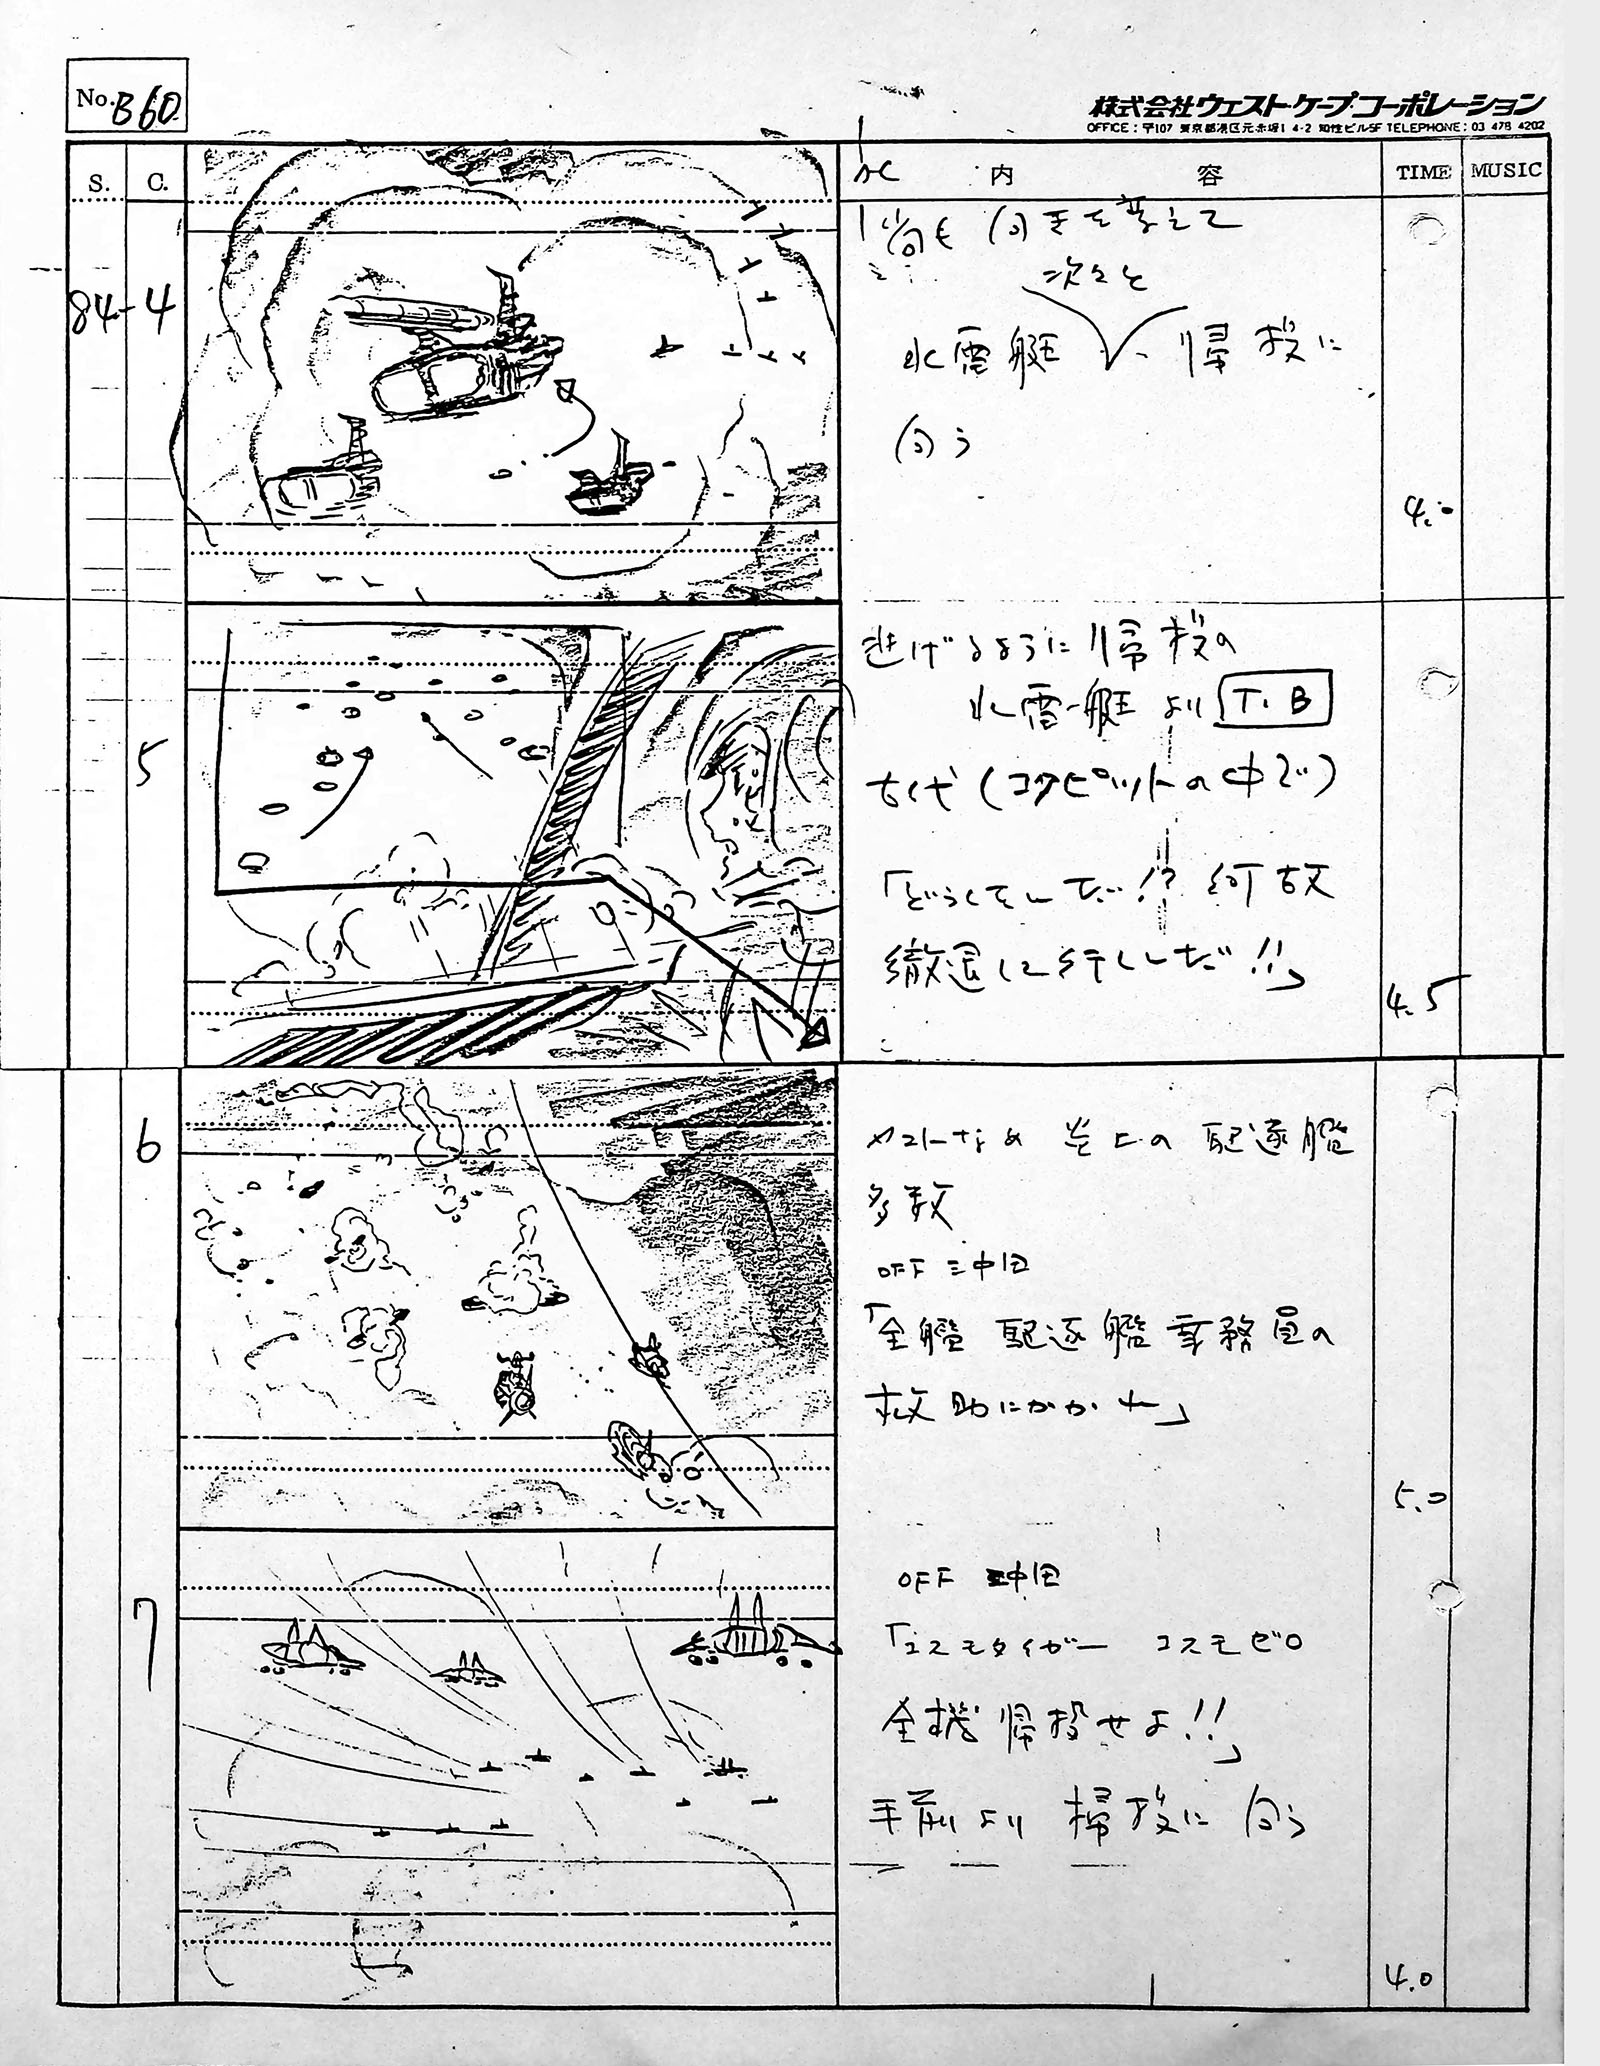 No. B60
株式会社ウェスト・ケープ・コーポレーション
OFFICE : 〒107 東京都港区元赤坂1 4-2 知性ビル5F TELEPHONE : 03 478 4202
S. C. 内 容 TIME MUSIC
84-4
尚も 向きを變えて
次々と
水雷艇 帰投に
向う
4.0
5
逃げるように帰投の
水雷艇より T.B
古代(コクピットの中で)
「どうしてだ!? 何故
徹退して行くんだ!!」
4.5
6
ヤマトナメ 岩上の 駆逐艦
多数
OFF 沖田
「全艦 駆逐艦乗務員の
救助にかかれ」
5.0
7
OFF 沖田
「コスモタイガー コスモゼロ
全機帰投せよ!!」
手前より 掃投に 向う
4.0